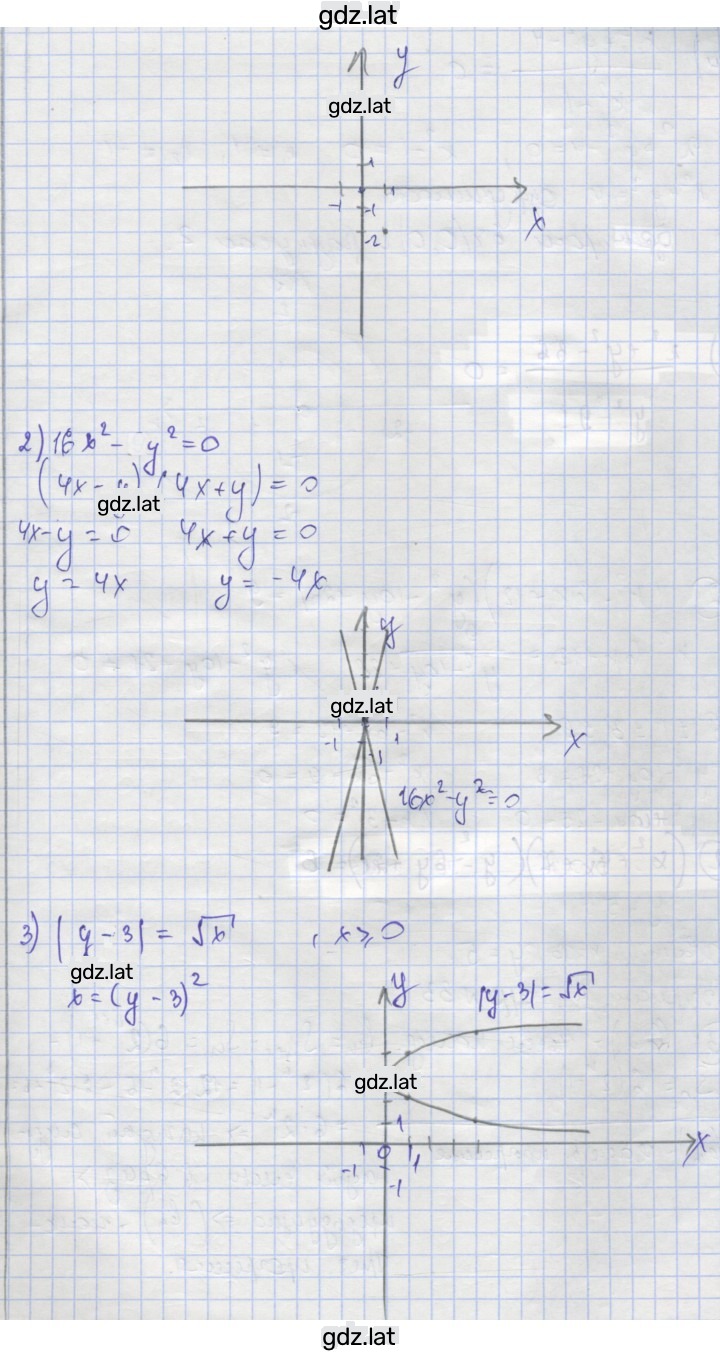 gdz.lat
y
gdz.lat
1
-1 1
-1
-2
x
2) 16x² - y² = 0
(4x - ) (4x + y) = 0
gdz.lat
4x - y = 0 4x + y = 0
y = 4x y = -4x
y
gdz.lat
-1 1
-1
x
16x² - y² = 0
3) |y - 3| = √x , x ⩾ 0
gdz.lat
x = (y - 3)²
y |y - 3| = √x
gdz.lat
1
x
-1 0 1
-1
gdz.lat